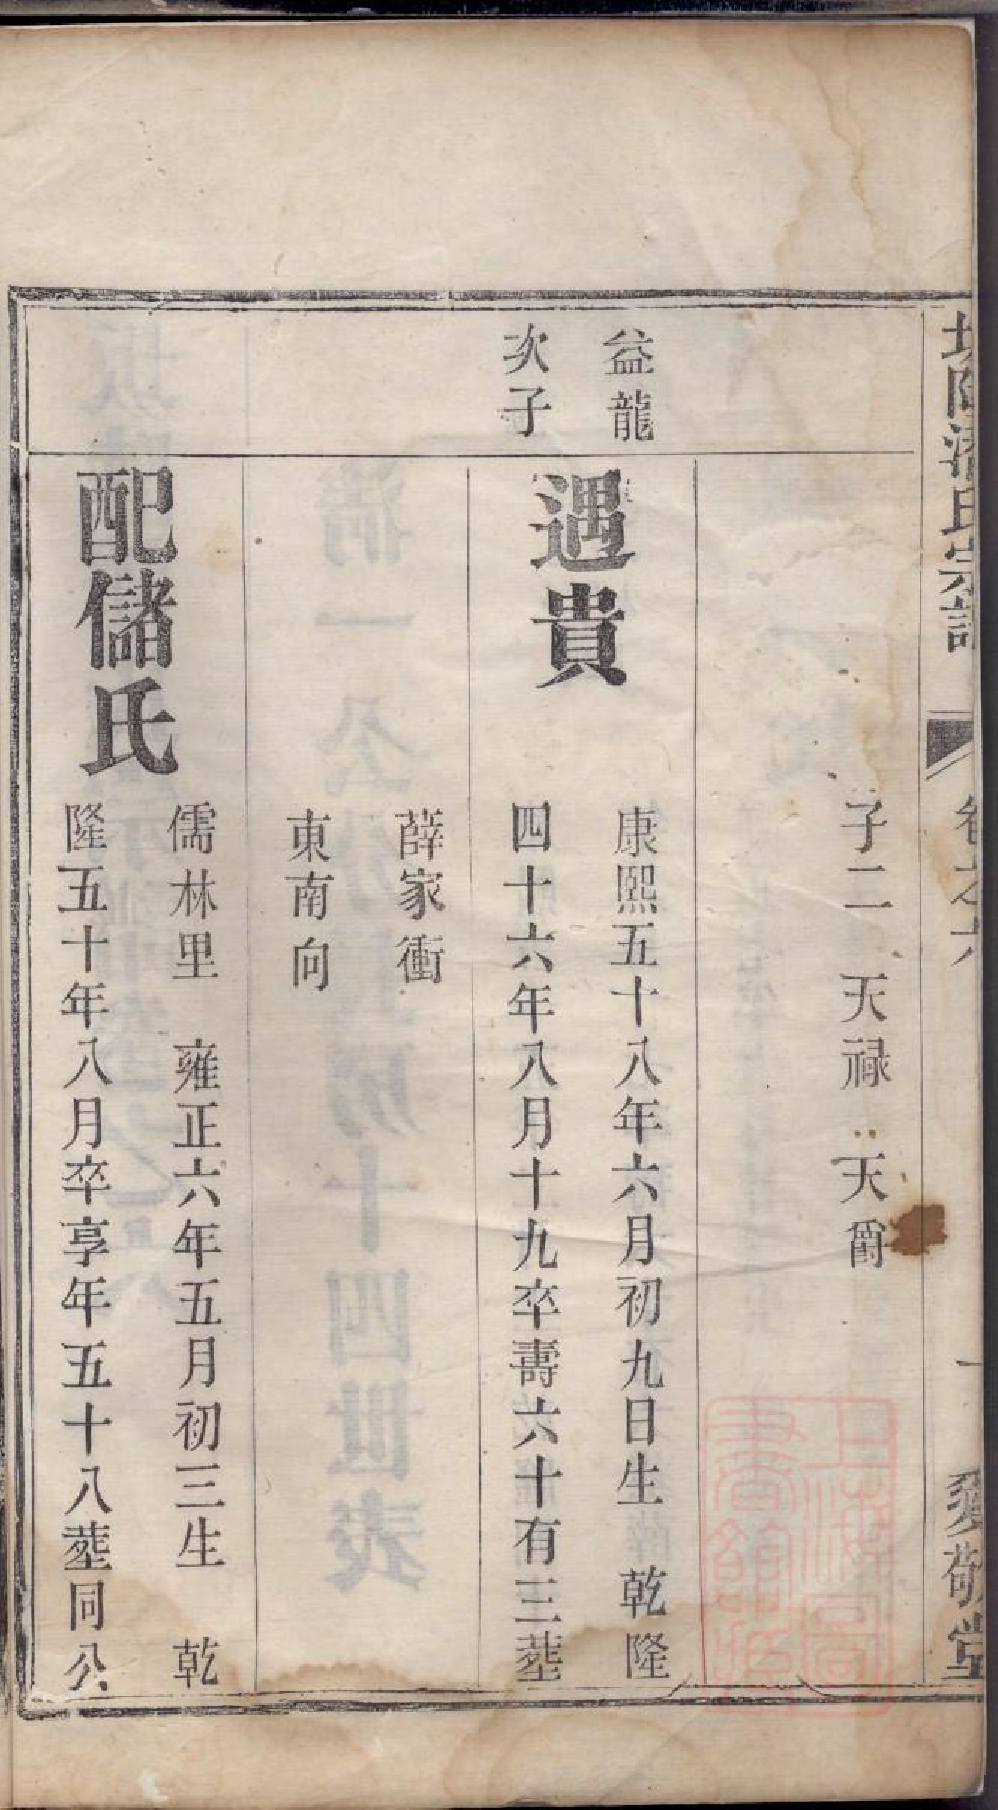 氏宗譜
卷之六
敬堂
子二 天祿 天爵
益龍
次子
遇貴
康熙五十八年六月初九日生 乾隆
四十六年八月十九卒壽六十有三塟
薛家衝
東南向
配儲氏
儒林里 雍正六年五月初三生 乾
隆五十年八月卒享年五十八塟同公